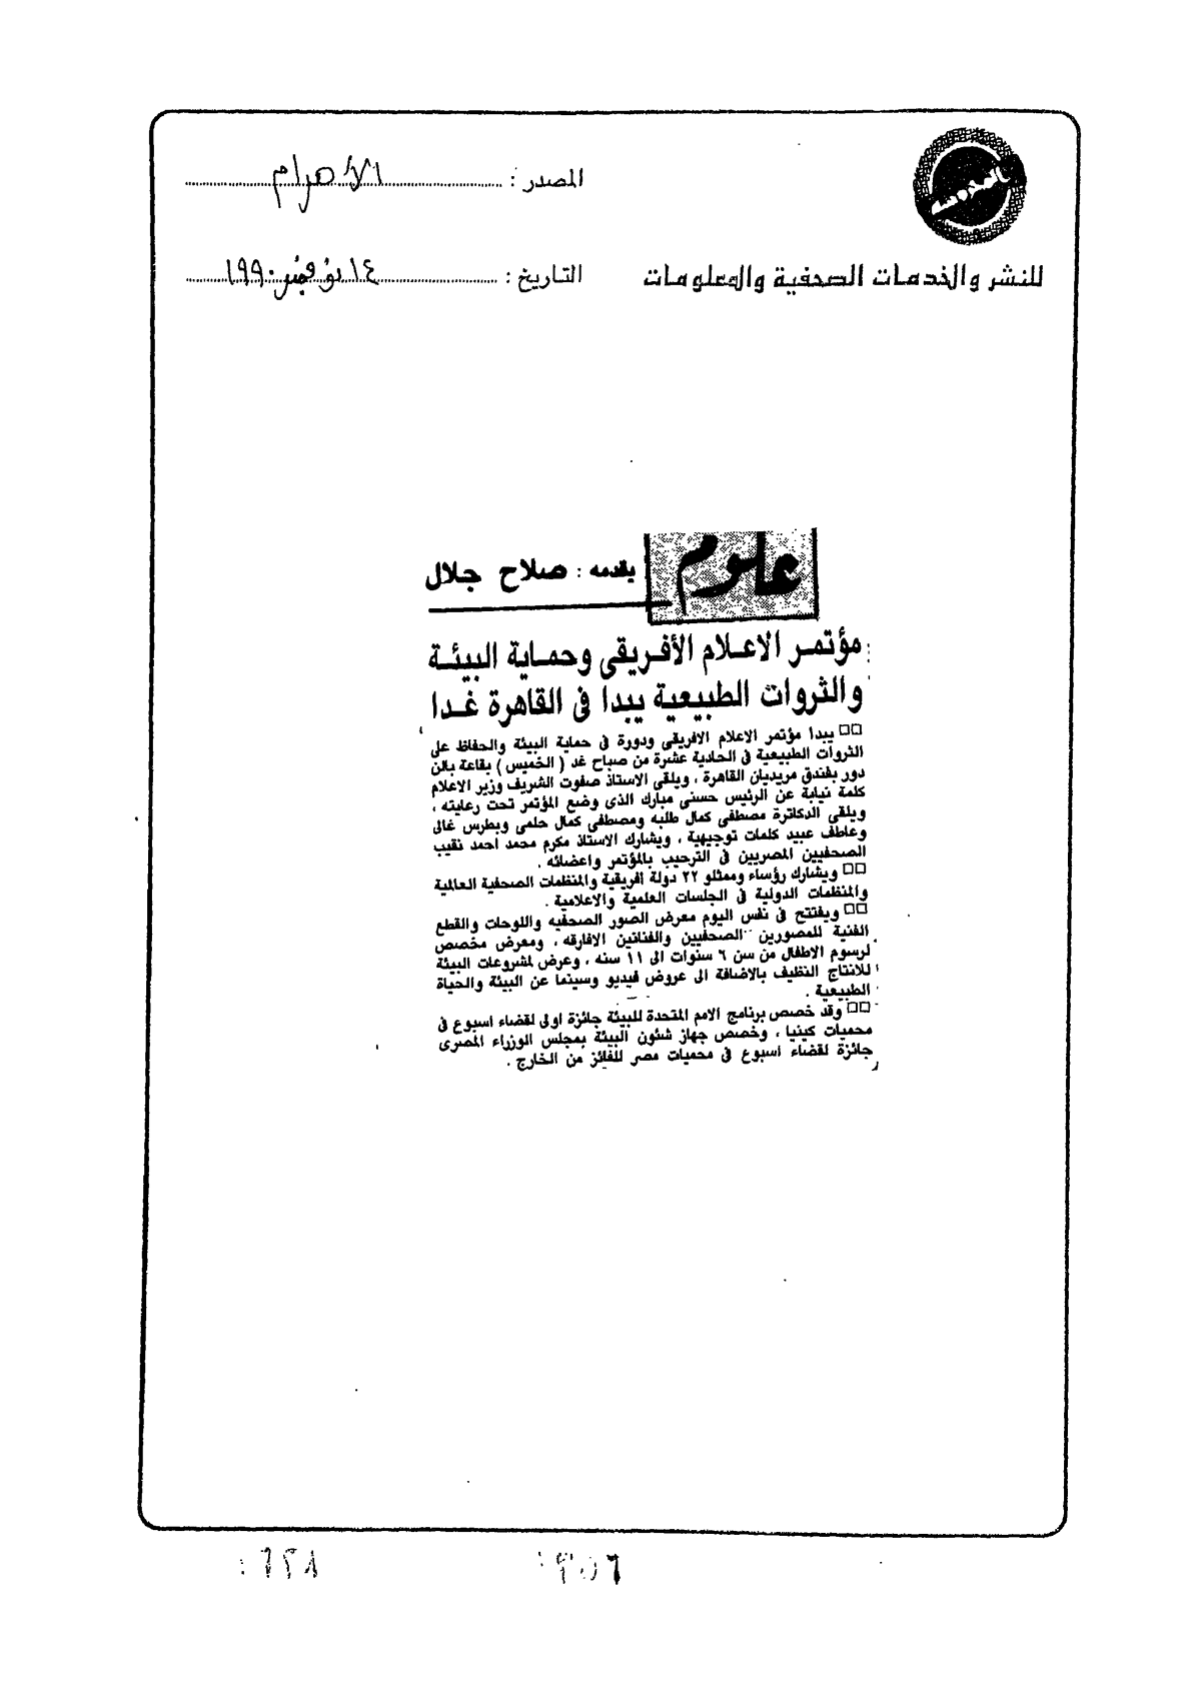 المصدر : الأهرام
للنشر والخدمات الصحفية والمعلومات
التاريخ : ١٤ نوفمبر ١٩٩٠
علوم
يقدمه : صلاح جلال
مؤتمر الاعلام الأفريقى وحماية البيئة
والثروات الطبيعية يبدا فى القاهرة غدا
□□ يبدا مؤتمر الاعلام الافريقى ودورة فى حماية البيئة والحفاظ على
الثروات الطبيعية فى الحادية عشرة من صباح غد ( الخميس ) بقاعة بالن
دور بفندق مريديان القاهرة ، ويلقى الاستاذ صفوت الشريف وزير الاعلام
كلمة نيابة عن الرئيس حسنى مبارك الذى وضع المؤتمر تحت رعايته ،
ويلقى الدكاترة مصطفى كمال طلبه ومصطفى كمال حلمى وبطرس غالى
وعاطف عبيد كلمات توجيهية ، ويشارك الاستاذ مكرم محمد احمد نقيب
الصحفيين المصريين فى الترحيب بالمؤتمر واعضائه .
□□ ويشارك رؤساء وممثلو ٢٢ دولة أفريقية والمنظمات الصحفية العالمية
والمنظمات الدولية فى الجلسات العلمية والاعلامية .
□□ ويفتتح فى نفس اليوم معرض الصور الصحفيه واللوحات والقطع
الفنية للمصورين الصحفيين والفنانين الافارقه ، ومعرض مخصص
لرسوم الاطفال من سن ٦ سنوات الى ١١ سنه ، وعرض لمشروعات البيئة
للانتاج النظيف بالاضافة الى عروض فيديو وسينما عن البيئة والحياة
الطبيعية .
□□ وقد خصص برنامج الامم المتحدة للبيئة جائزة اولى لقضاء اسبوع فى
محميات كينيا ، وخصص جهاز شئون البيئة بمجلس الوزراء المصرى
جائزة لقضاء اسبوع فى محميات مصر للفائز من الخارج .